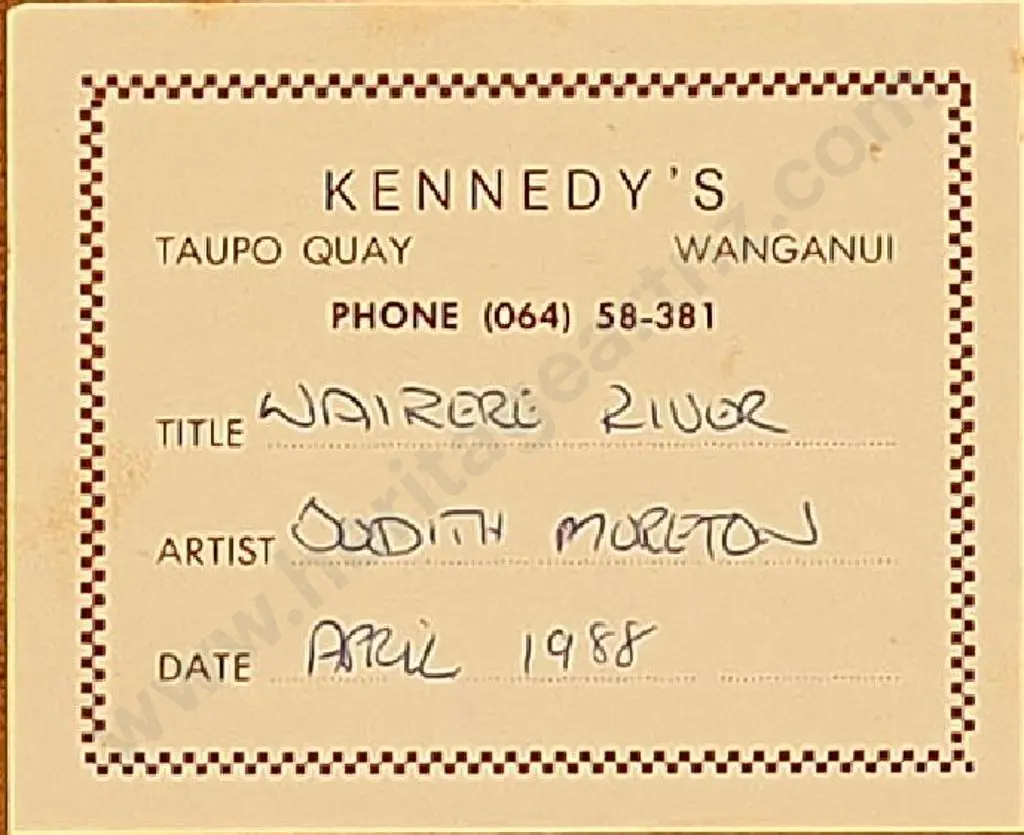 KENNEDY'S
TAUPO QUAY WANGANUI
PHONE (064) 58-381
TITLE WAIRERE RIVER
ARTIST JUDITH MORETON
DATE APRIL 1988
www.heritageartnz.com